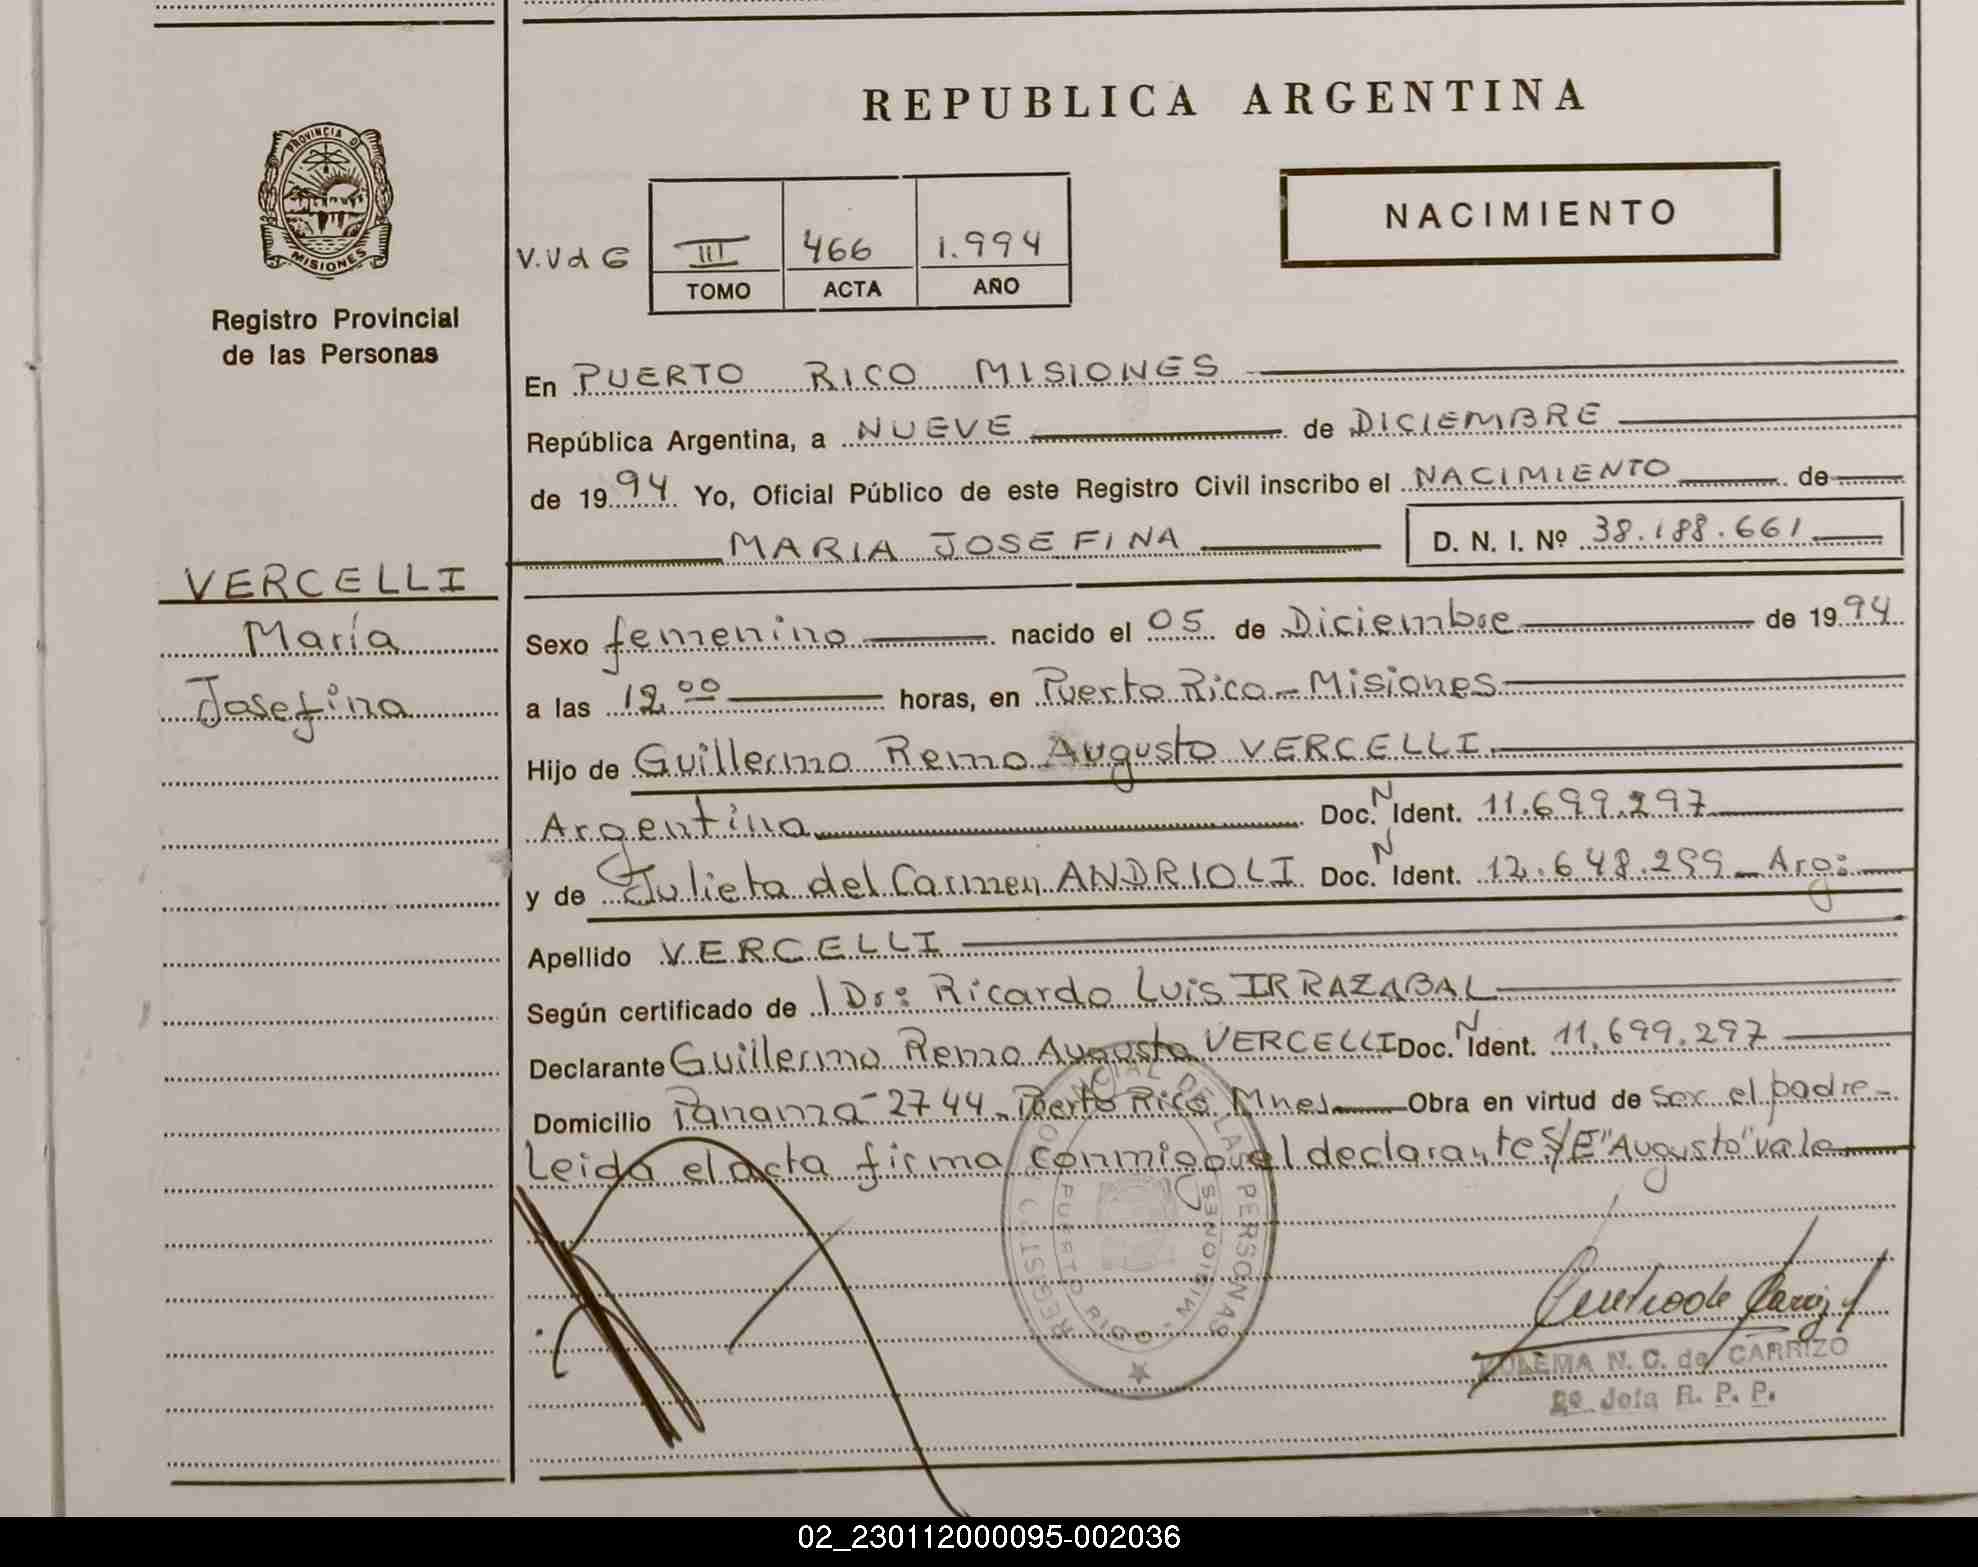 REPUBLICA ARGENTINA
PROVINCIA DE
MISIONES
Registro Provincial
de las Personas
NACIMIENTO
V.V d G III 466 1.994
TOMO ACTA AÑO
En PUERTO RICO MISIONES
República Argentina, a NUEVE de DICIEMBRE
de 1994 Yo, Oficial Público de este Registro Civil inscribo el NACIMIENTO de
MARIA JOSEFINA D. N. I. Nº 38.188.661
VERCELLI
María
Josefina
Sexo femenino nacido el 05 de Diciembre de 1994
a las 12,00 horas, en Puerto Rico - Misiones
Hijo de Guillermo Remo Augusto VERCELLI
Argentina Doc. N Ident. 11.699.297
y de Julieta del Carmen ANDRIOLI Doc. N Ident. 12.648.299 - Arg:
Apellido VERCELLI
Según certificado de Dr: Ricardo Luis IRRAZABAL
Declarante Guillermo Remo Augusto VERCELLI Doc. N Ident. 11.699.297
Domicilio Panamá - 2744 - Puerto Rico Mnes Obra en virtud de ser el padre -
Leida el acta firma conmigo el declarante S/E "Augusto" vale
REGISTRO PROVINCIAL DE LAS PERSONAS
PUERTO RICO - MISIONES
ZULEMA N. C. de CARRIZO
2º Jefa R. P. P.
02_230112000095-002036